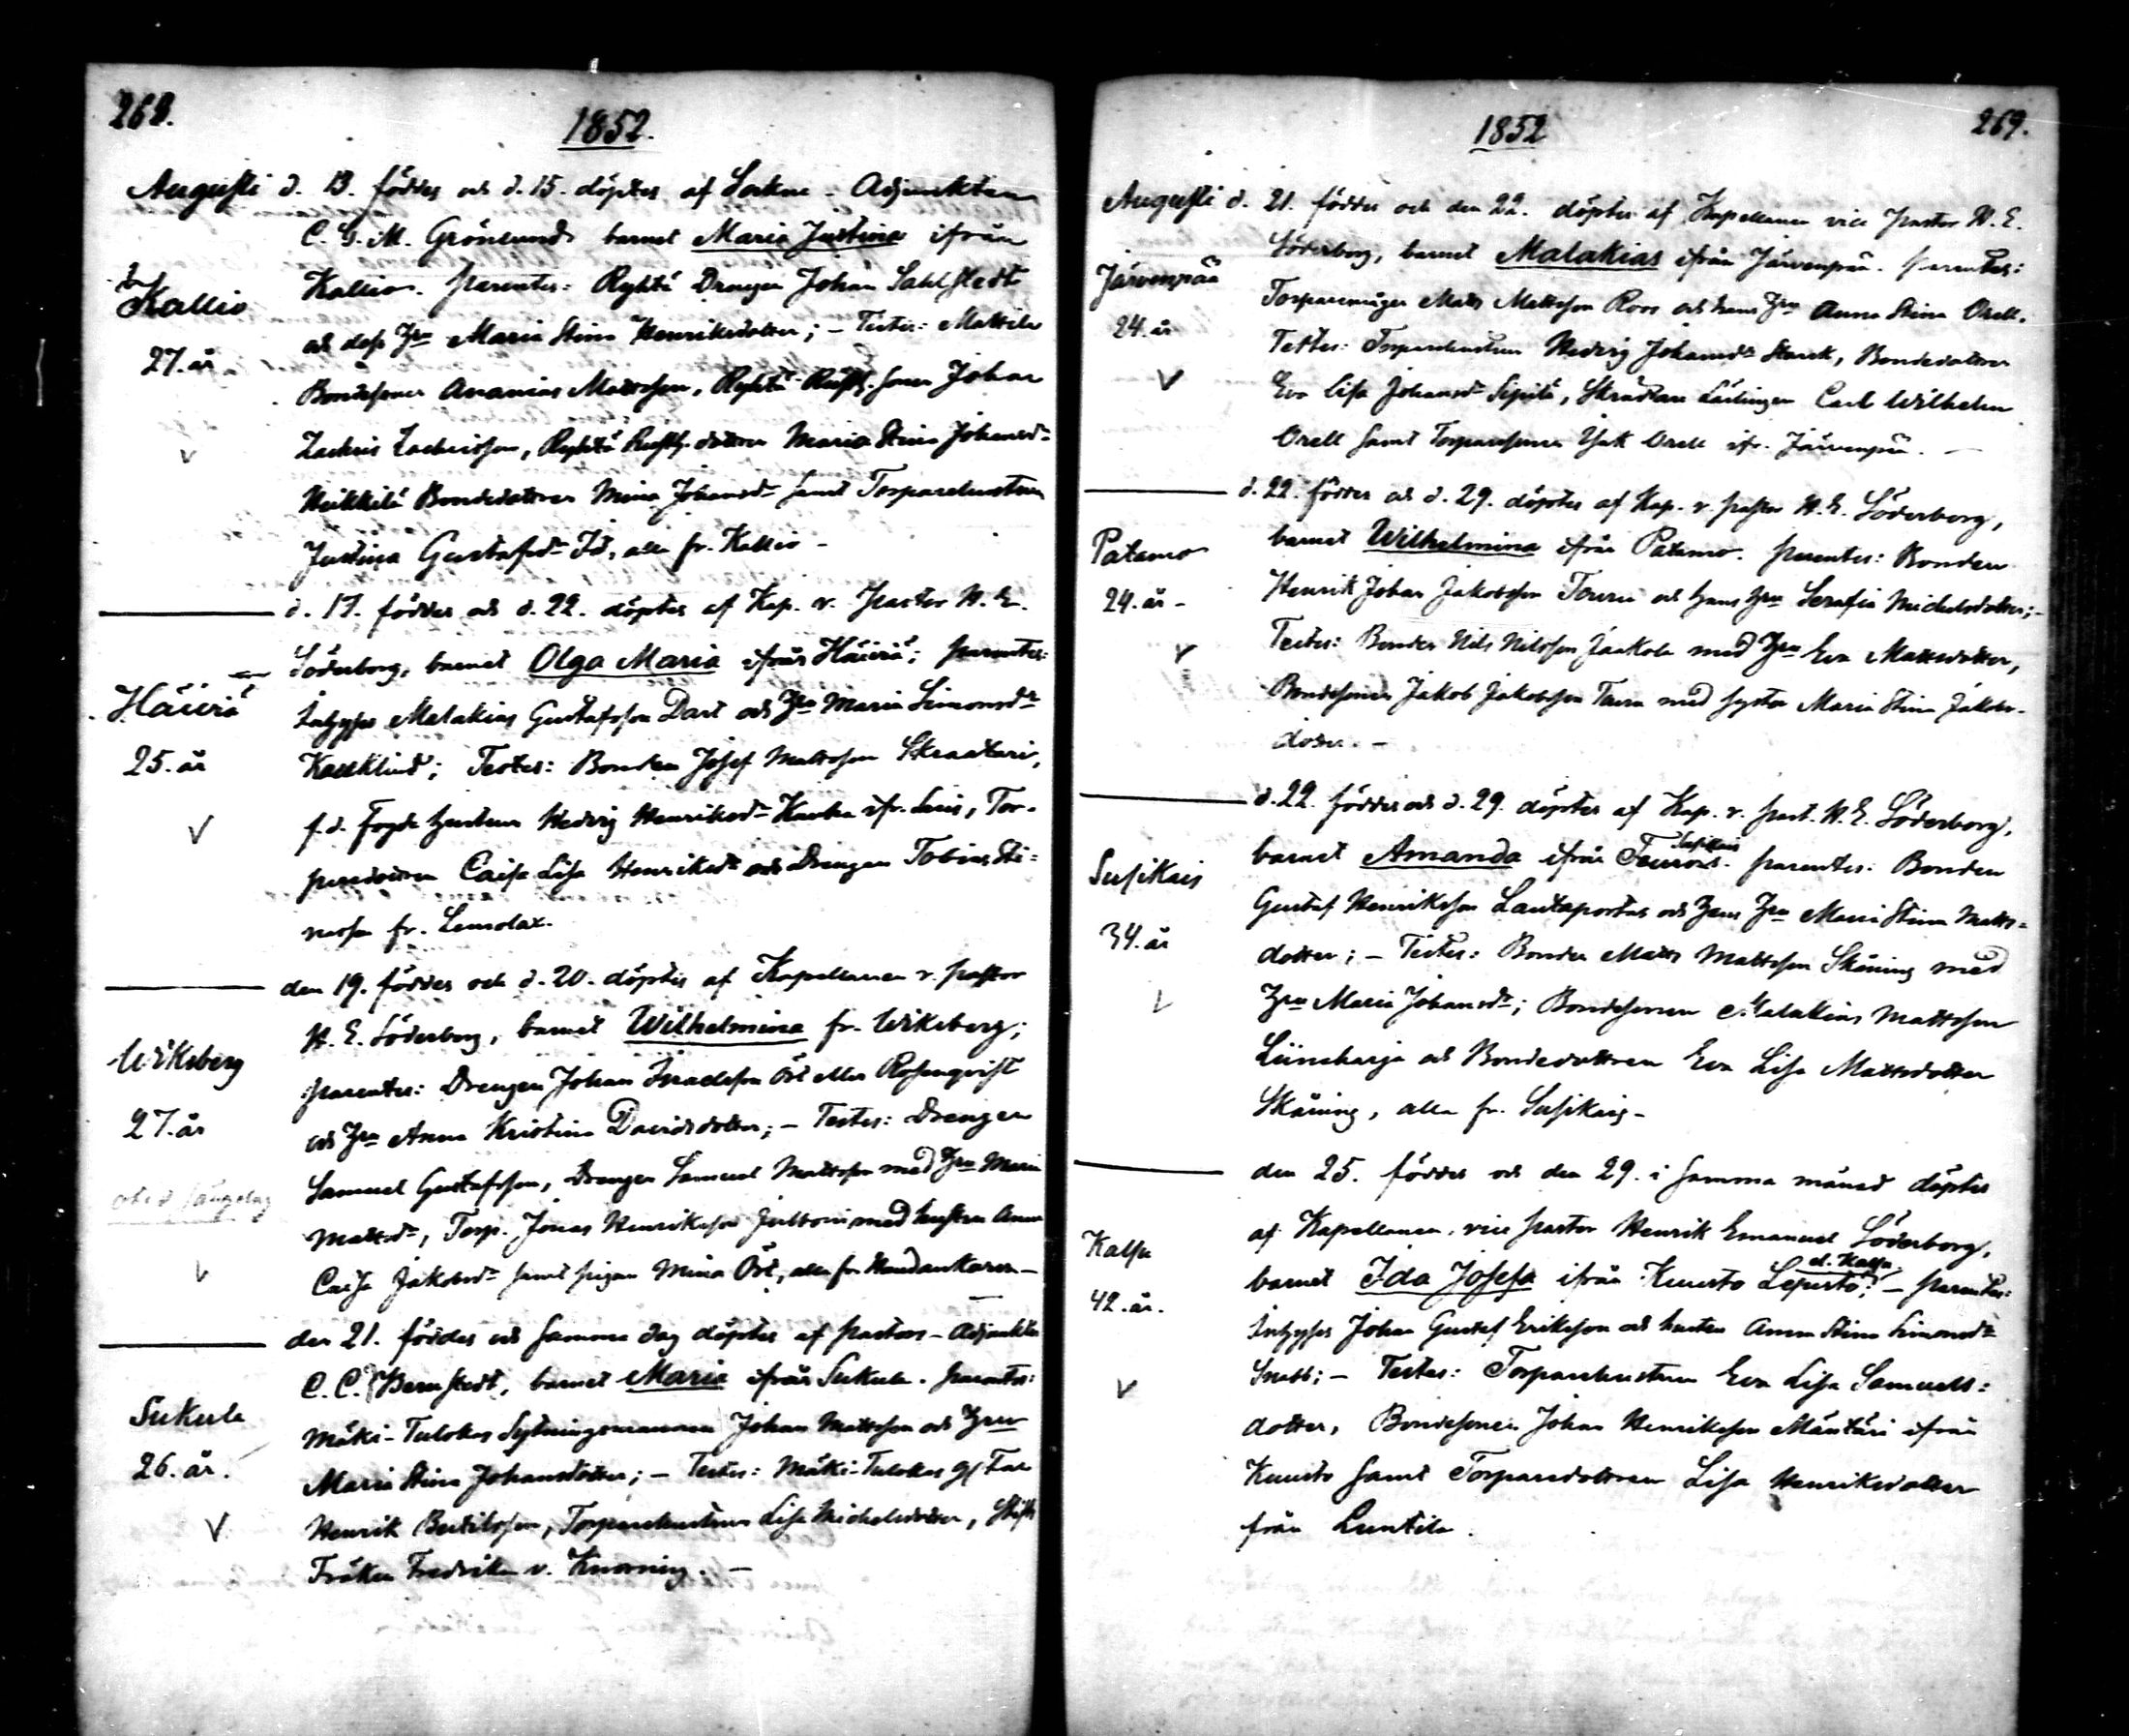 268.
1852.
Augusti d. 13. föddes och d. 15. döptes af Sockne-Adjunkten
C. G. M. Grönlund barnet Maria Justina ifrån
Kallio
Kallio. Parentes: Ryhtä Drängen Johan Sahlstedt
och dess Hru Maria Stina Henriksdotter; – Testes: Mattila
27. år
Bondesonen Ananias Mattsson, Ryhtä Rusth. sonen Johan
Zachris Zachrisson, Ryhtä Rusth. dottren Maria Stina Johansdr
Heikkilä Bondedottren Mina Johansdr samt Torparehustrun
Justina Gustafsdr Id, alla fr. Kallio –
d. 17. föddes och d. 22. döptes af Kap. v. Pastor H. E.
Söderborg, barnet Olga Maria ifrån Häiviä; Parentes:
Häiviä
Inhyses Malakias Gustafsson Dart och Hru Maria Simonsdr
25. år
Testes: Bonden Josef Mattsson Skraatari,
f.d. Fogde hustrun Hedvig Henriksdr ifr. Suis, Tor-
paredottren Caisa Lisa Henriksdr och Drängen Tobias
fr. Lemolax.
den 19. föddes och d. 20. döptes af Kapellanen v. Pastor
H. E. Söderborg, barnet Wilhelmina fr. Wiksberg;
Wiksberg
Parentes: Drengen Johan Israelsson Öst eller Rosenqvist
27. år
och Hru Anna Kristina Davidsdotter; – Testes: Drengen
Samuel Gustafsson, Drengen Samuel Mattsson med Hru Maria
Mattsdr, Torp. Jonas Henriksson med hustru Anna
Caisa Jakobsdr samt pigan Mina Öst, alla fr.
den 21. föddes och samma dag döptes af Pastors-Adjunkten
C. C. Bernstedt, barnet Maria ifrån Sukula. Parentes:
Sukula
Mäki-Tulokas Sytningsmannen Johan Mattsson och Hru
26. år.
Maria Stina Johansdotter; – Testes: Mäki-Tulokas
Henrik Bertilsson, Torparehustrun Lisa Michelsdotter,
Fröken Fredrika v. Knorring. –
1852
269.
Augusti d. 21. föddes och den 22. döptes af Kapellanen vice Pastor H. E.
Söderborg, barnet Malakias ifrån Järvenpää. Parentes:
Järvenpää
Matts Mattsson Roos och hans Hru Anna Stina Orell.
24. år
Testes: Torparehustrun Hedvig Johansdr Starck, Bondedottren
Eva Lisa Johansdr Sipilä, Skräddare Lärlingen Carl Wilhelm
Orell samt Torparesonen Isak Orell ifr. Järvenpää. –
d. 22. föddes och d. 29. döptes af Kap. v. Pastor H. E. Söderborg,
Patamo
barnet Wilhelmina ifrån Patamo. Parentes: Bonden
24. år –
Henrik Johan Jakobsson Touru och hans Hru Serafia Michelsdotter; –
Testes: Bonden Nils Nilsson Jaakola med Hru Eva Mattsdotter,
Bondesonen Jakob Jakobsson Touru med syster Maria Stina Jakobs-
dotter. –
d. 22. föddes och d. 29. döptes af Kap. v. Past. H. E. Söderborg,
Susikais
barnet Amanda ifrån Susikais. Parentes: Bonden
Gustaf Henriksson Lautaportas och hans Hru Maria Stina Matts-
34. år
dotter; – Testes: Bonden Matts Mattsson Skåning med
Hru Maria Johansdr; Bondesonen Malakias Mattsson
Liinaharja och Bondedottren Eva Lisa Mattsdotter
Skåning, alla fr. Susikais –
den 25. föddes och den 29. i samma månad döptes
Kalsa
af Kapellanen, vice Pastor Henrik Emanuel Söderborg,
el. Kalsa
barnet Ida Josefa ifrån Kuusto Lepistö; – Parentes:
42. år.
Inhyses Johan Gustaf Eriksson och hustru Anna Stina Simonsdr
Snabb; – Testes: Torparehustrun Eva Lisa Samuels-
dotter, Bondesonen Johan Henriksson Mäntäri ifrån
Kuusto samt Torparedottren Lisa Henriksdotter
från Luntila.